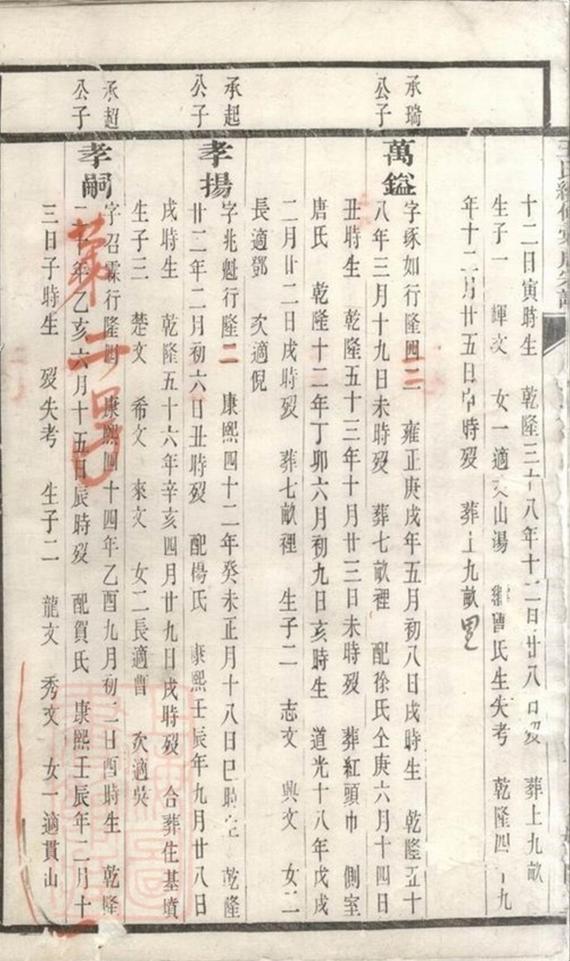 十二日寅時生 乾隆三十八年十二日廿八日歿 葬上九畝
生子一 輝文 女一適 山湯 曹氏生失考 乾隆四十九
年十二月廿五日 時歿 葬上九畝里
承瑞公子
萬鎰
字琢如行隆四二 雍正庚戌年五月初八日戌時生 乾隆五十
八年三月十九日未時歿 葬七畝裡 配徐氏仝庚六月十四日
丑時生 乾隆五十三年十月廿三日未時歿 葬紅頭巾 側室
唐氏 乾隆十二年丁卯六月初九日亥時生 道光十八年戊戌
二月廿二日戌時歿 葬七畝裡 生子二 志文 興文 女二
長適鄧 次適倪
承起公子
孝揚
字兆魁行隆二 康熙四十二年癸未正月十八日巳時生 乾隆
廿二年二月初六日丑時歿 配楊氏 康熙壬辰年九月廿八日
戌時生 乾隆五十六年辛亥四月廿九日戌時歿 合葬住基墳
生子三 楚文 希文 來文 女二長適曹 次適吳
承超公子
孝嗣
字召霖行隆四 康熙四十四年乙酉九月初二日酉時生 乾隆
二十年乙亥六月十五日辰時歿 配賀氏 康熙壬辰年二月十
三日子時生 歿失考 生子二 龍文 秀文 女一適貫山
第一号